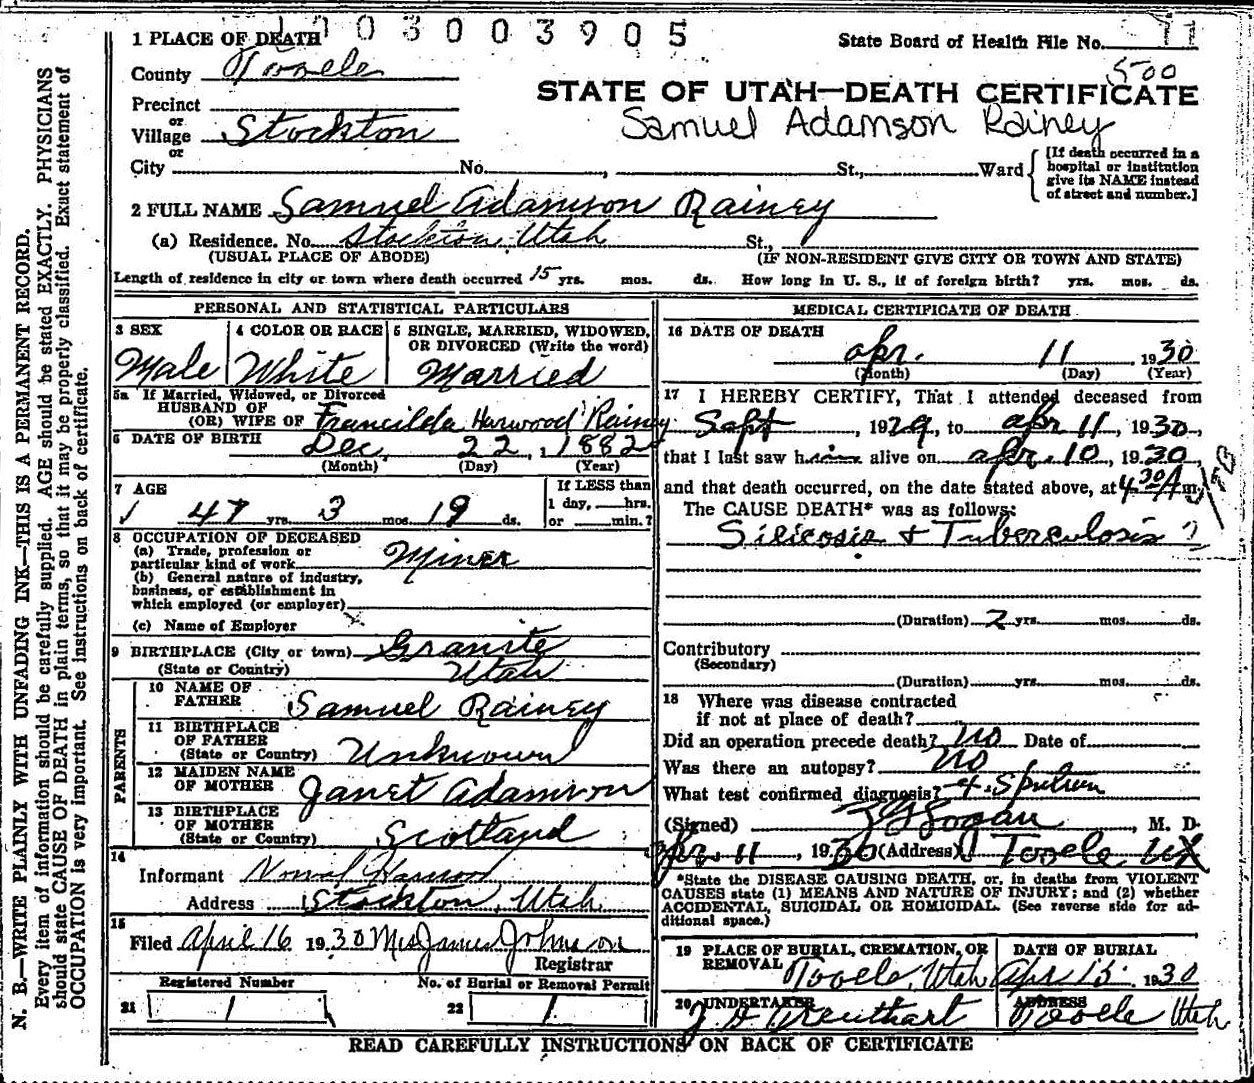 1003003905
1 PLACE OF DEATH
State Board of Health File No. 11
County Tooele
500
STATE OF UTAH—DEATH CERTIFICATE
Precinct
or
Village Stockton
Samuel Adamson Rainey
or
City No. , St., Ward
[If death occurred in a
hospital or institution
give its NAME instead
of street and number.]
2 FULL NAME Samuel Adamson Rainey
(a) Residence. No. Stockton, Utah St.,
(USUAL PLACE OF ABODE) (IF NON-RESIDENT GIVE CITY OR TOWN AND STATE)
Length of residence in city or town where death occurred 15 yrs. mos. ds. How long in U. S., if of foreign birth? yrs. mos. ds.
PERSONAL AND STATISTICAL PARTICULARS
3 SEX
Male
4 COLOR OR RACE
White
5 SINGLE, MARRIED, WIDOWED,
OR DIVORCED (Write the word)
Married
5a If Married, Widowed, or Divorced
HUSBAND OF
(OR) WIFE OF Francilda Harwood Rainey
6 DATE OF BIRTH Dec. 22, 1882
(Month) (Day) (Year)
7 AGE
47 yrs. 3 mos. 19 ds.
If LESS than
1 day, hrs.
or min.?
8 OCCUPATION OF DECEASED
(a) Trade, profession or
particular kind of work Miner
(b) General nature of industry,
business, or establishment in
which employed (or employer)
(c) Name of Employer
9 BIRTHPLACE (City or town) Granite
(State or Country) Utah
PARENTS
10 NAME OF
FATHER Samuel Rainey
11 BIRTHPLACE
OF FATHER
(State or Country) Unknown
12 MAIDEN NAME
OF MOTHER Janet Adamson
13 BIRTHPLACE
OF MOTHER
(State or Country) Scotland
14
Informant
Address Stockton, Utah
15
Filed April 16 1930 Mrs James Johnson
Registrar
Registered Number No. of Burial or Removal Permit
21 1 22 1
MEDICAL CERTIFICATE OF DEATH
16 DATE OF DEATH
Apr. 11, 1930
(Month) (Day) (Year)
17 I HEREBY CERTIFY, That I attended deceased from
Sept, 1929, to Apr 11, 1930,
that I last saw him alive on Apr. 10, 1930
and that death occurred, on the date stated above, at 4 30 A m.
The CAUSE DEATH* was as follows:
Silicosis & Tuberculosis ?
(Duration) 2 yrs. mos. ds.
Contributory
(Secondary)
(Duration) yrs. mos. ds.
18 Where was disease contracted
if not at place of death?
Did an operation precede death? No Date of
Was there an autopsy? No
What test confirmed diagnosis? Sputum
(Signed) , M. D.
Apr. 11, 1930 (Address) Tooele Ut
*State the DISEASE CAUSING DEATH, or, in deaths from VIOLENT
CAUSES state (1) MEANS AND NATURE OF INJURY; and (2) whether
ACCIDENTAL, SUICIDAL OR HOMICIDAL. (See reverse side for ad-
ditional space.)
19 PLACE OF BURIAL, CREMATION, OR
REMOVAL Tooele, Utah
DATE OF BURIAL
Apr 13 1930
20 UNDERTAKER
ADDRESS
Tooele Utah
READ CAREFULLY INSTRUCTIONS ON BACK OF CERTIFICATE
N. B.—WRITE PLAINLY WITH UNFADING INK—THIS IS A PERMANENT RECORD.
Every item of information should be carefully supplied. AGE should be stated EXACTLY. PHYSICIANS
should state CAUSE OF DEATH in plain terms, so that it may be properly classified. Exact statement of
OCCUPATION is very important. See instructions on back of certificate.